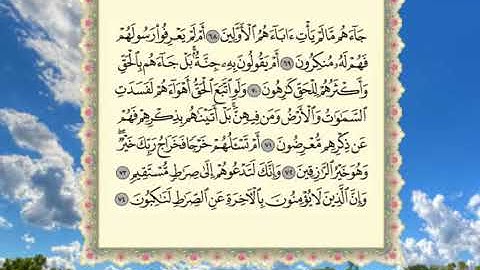 جَآءَهُم مَّا لَمْ يَأْتِ ءَابَآءَهُمُ ٱلْأَوَّلِينَ ٦٨ أَمْ لَمْ يَعْرِفُوا۟ رَسُولَهُمْ
فَهُمْ لَهُۥ مُنكِرُونَ ٦٩ أَمْ يَقُولُونَ بِهِۦ جِنَّةٌۢ ۚ بَلْ جَآءَهُم بِٱلْحَقِّ
وَأَكْثَرُهُمْ لِلْحَقِّ كَـٰرِهُونَ ٧٠ وَلَوِ ٱتَّبَعَ ٱلْحَقُّ أَهْوَآءَهُمْ لَفَسَدَتِ
ٱلسَّمَـٰوَٰتُ وَٱلْأَرْضُ وَمَن فِيهِنَّ ۚ بَلْ أَتَيْنَـٰهُم بِذِكْرِهِمْ فَهُمْ
عَن ذِكْرِهِم مُّعْرِضُونَ ٧١ أَمْ تَسْـَٔلُهُمْ خَرْجًا فَخَرَاجُ رَبِّكَ خَيْرٌ ۖ
وَهُوَ خَيْرُ ٱلرَّٰزِقِينَ ٧٢ وَإِنَّكَ لَتَدْعُوهُمْ إِلَىٰ صِرَٰطٍ مُّسْتَقِيمٍ ٧٣
وَإِنَّ ٱلَّذِينَ لَا يُؤْمِنُونَ بِٱلْـَٔاخِرَةِ عَنِ ٱلصِّرَٰطِ لَنَـٰكِبُونَ ٧٤